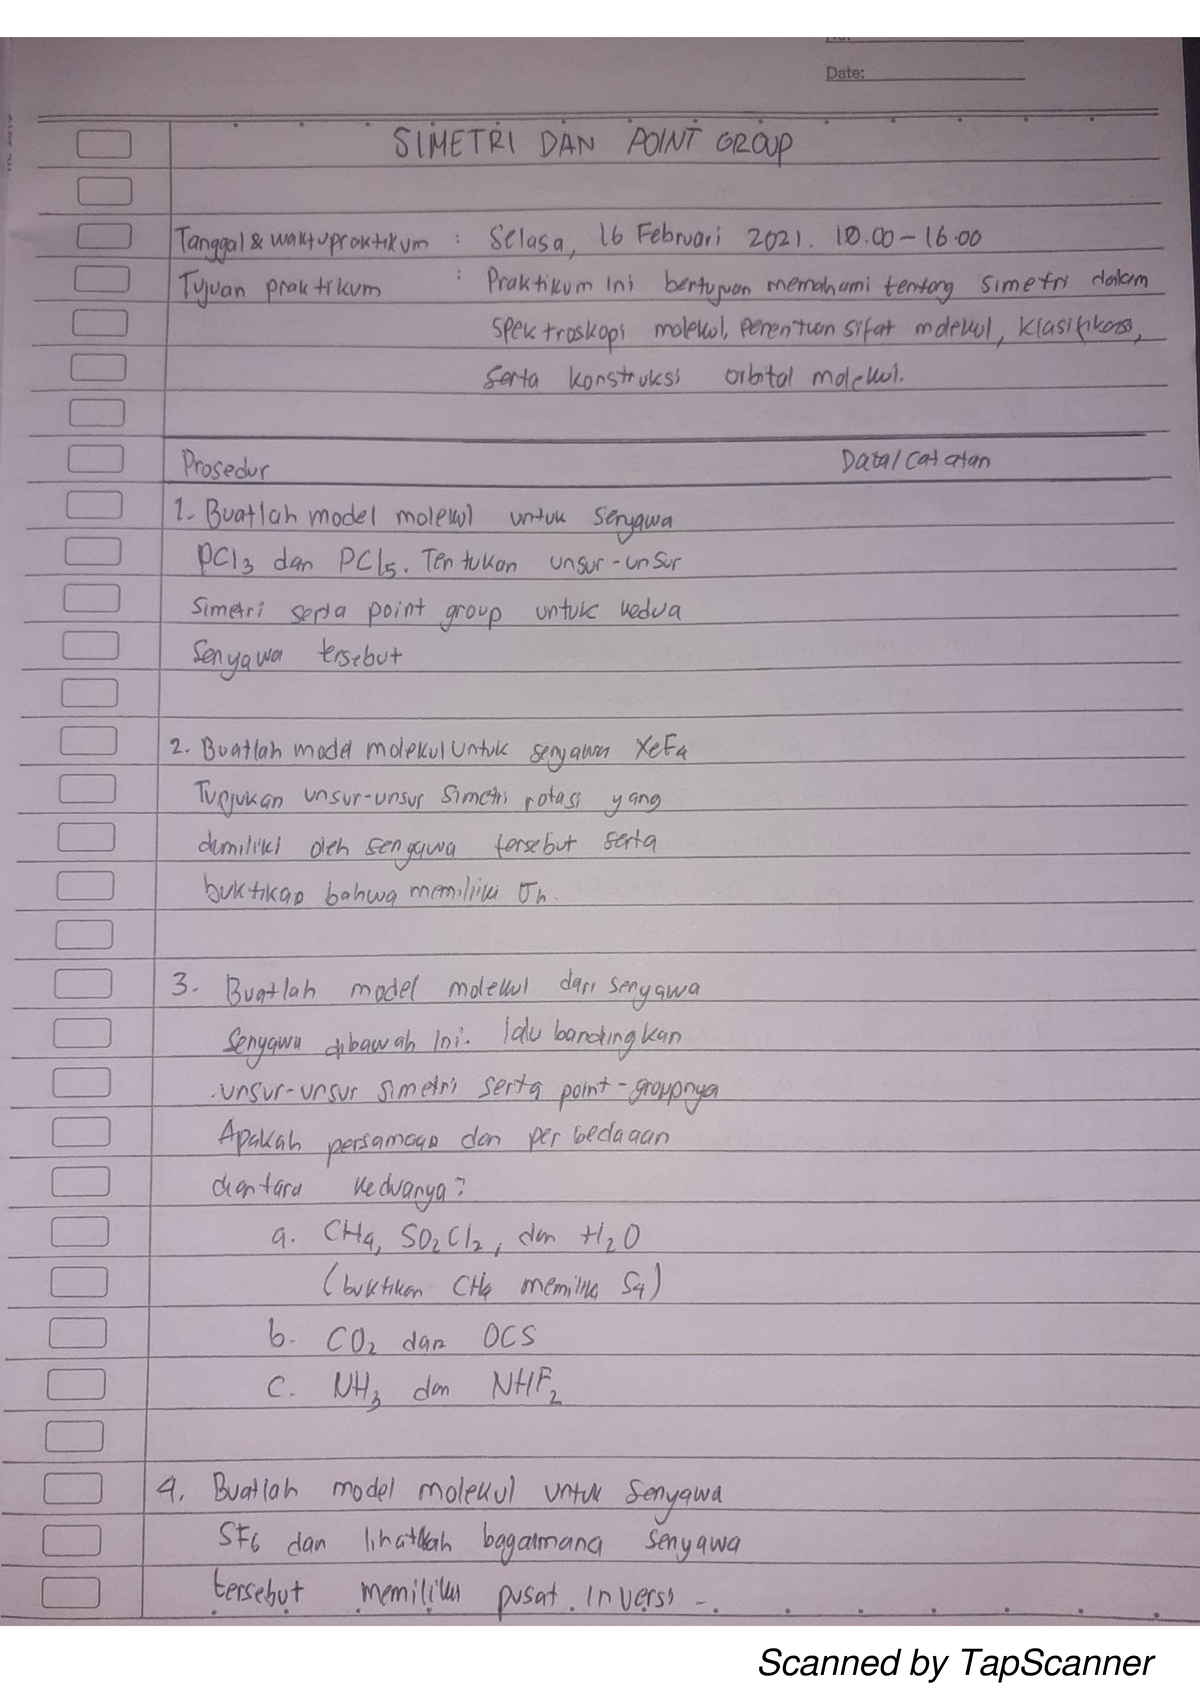 Date:
SIMETRI DAN POINT GROUP
Tanggal & waktu praktikum : Selasa, 16 Februari 2021. 10.00-16.00
Tujuan praktikum : Praktikum ini bertujuan memahami tentang simetri dalam
spektroskopi molekul, penentuan sifat molekul, klasifikasi,
serta konstruksi orbital molekul.
Prosedur Data/catatan
1. Buatlah model molekul untuk senyawa
PCl3 dan PCl5. Tentukan unsur-unsur
Simetri serta point group untuk kedua
Senyawa tersebut
2. Buatlah model molekul untuk senyawa XeF4
Tunjukan unsur-unsur simetri rotasi yang
dimiliki oleh senyawa tersebut serta
buktikan bahwa memiliki σh.
3. Buatlah model molekul dari senyawa
Senyawa dibawah ini. lalu bandingkan
unsur-unsur simetri serta point-groupnya
Apakah persamaan dan perbedaaan
diantara keduanya?
a. CH4, SO2Cl2, dan H2O
(buktikan CH4 memiliki S4)
b. CO2 dan OCS
C. NH3 dan NHF2
4. Buatlah model molekul untuk senyawa
SF6 dan lihatlah bagaimana senyawa
tersebut memiliki pusat inversi -.
Scanned by TapScanner